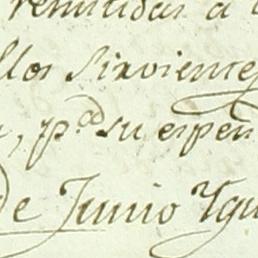 remitidas a
llos sirvientes
, p.ª su espen
de Junio Ygu